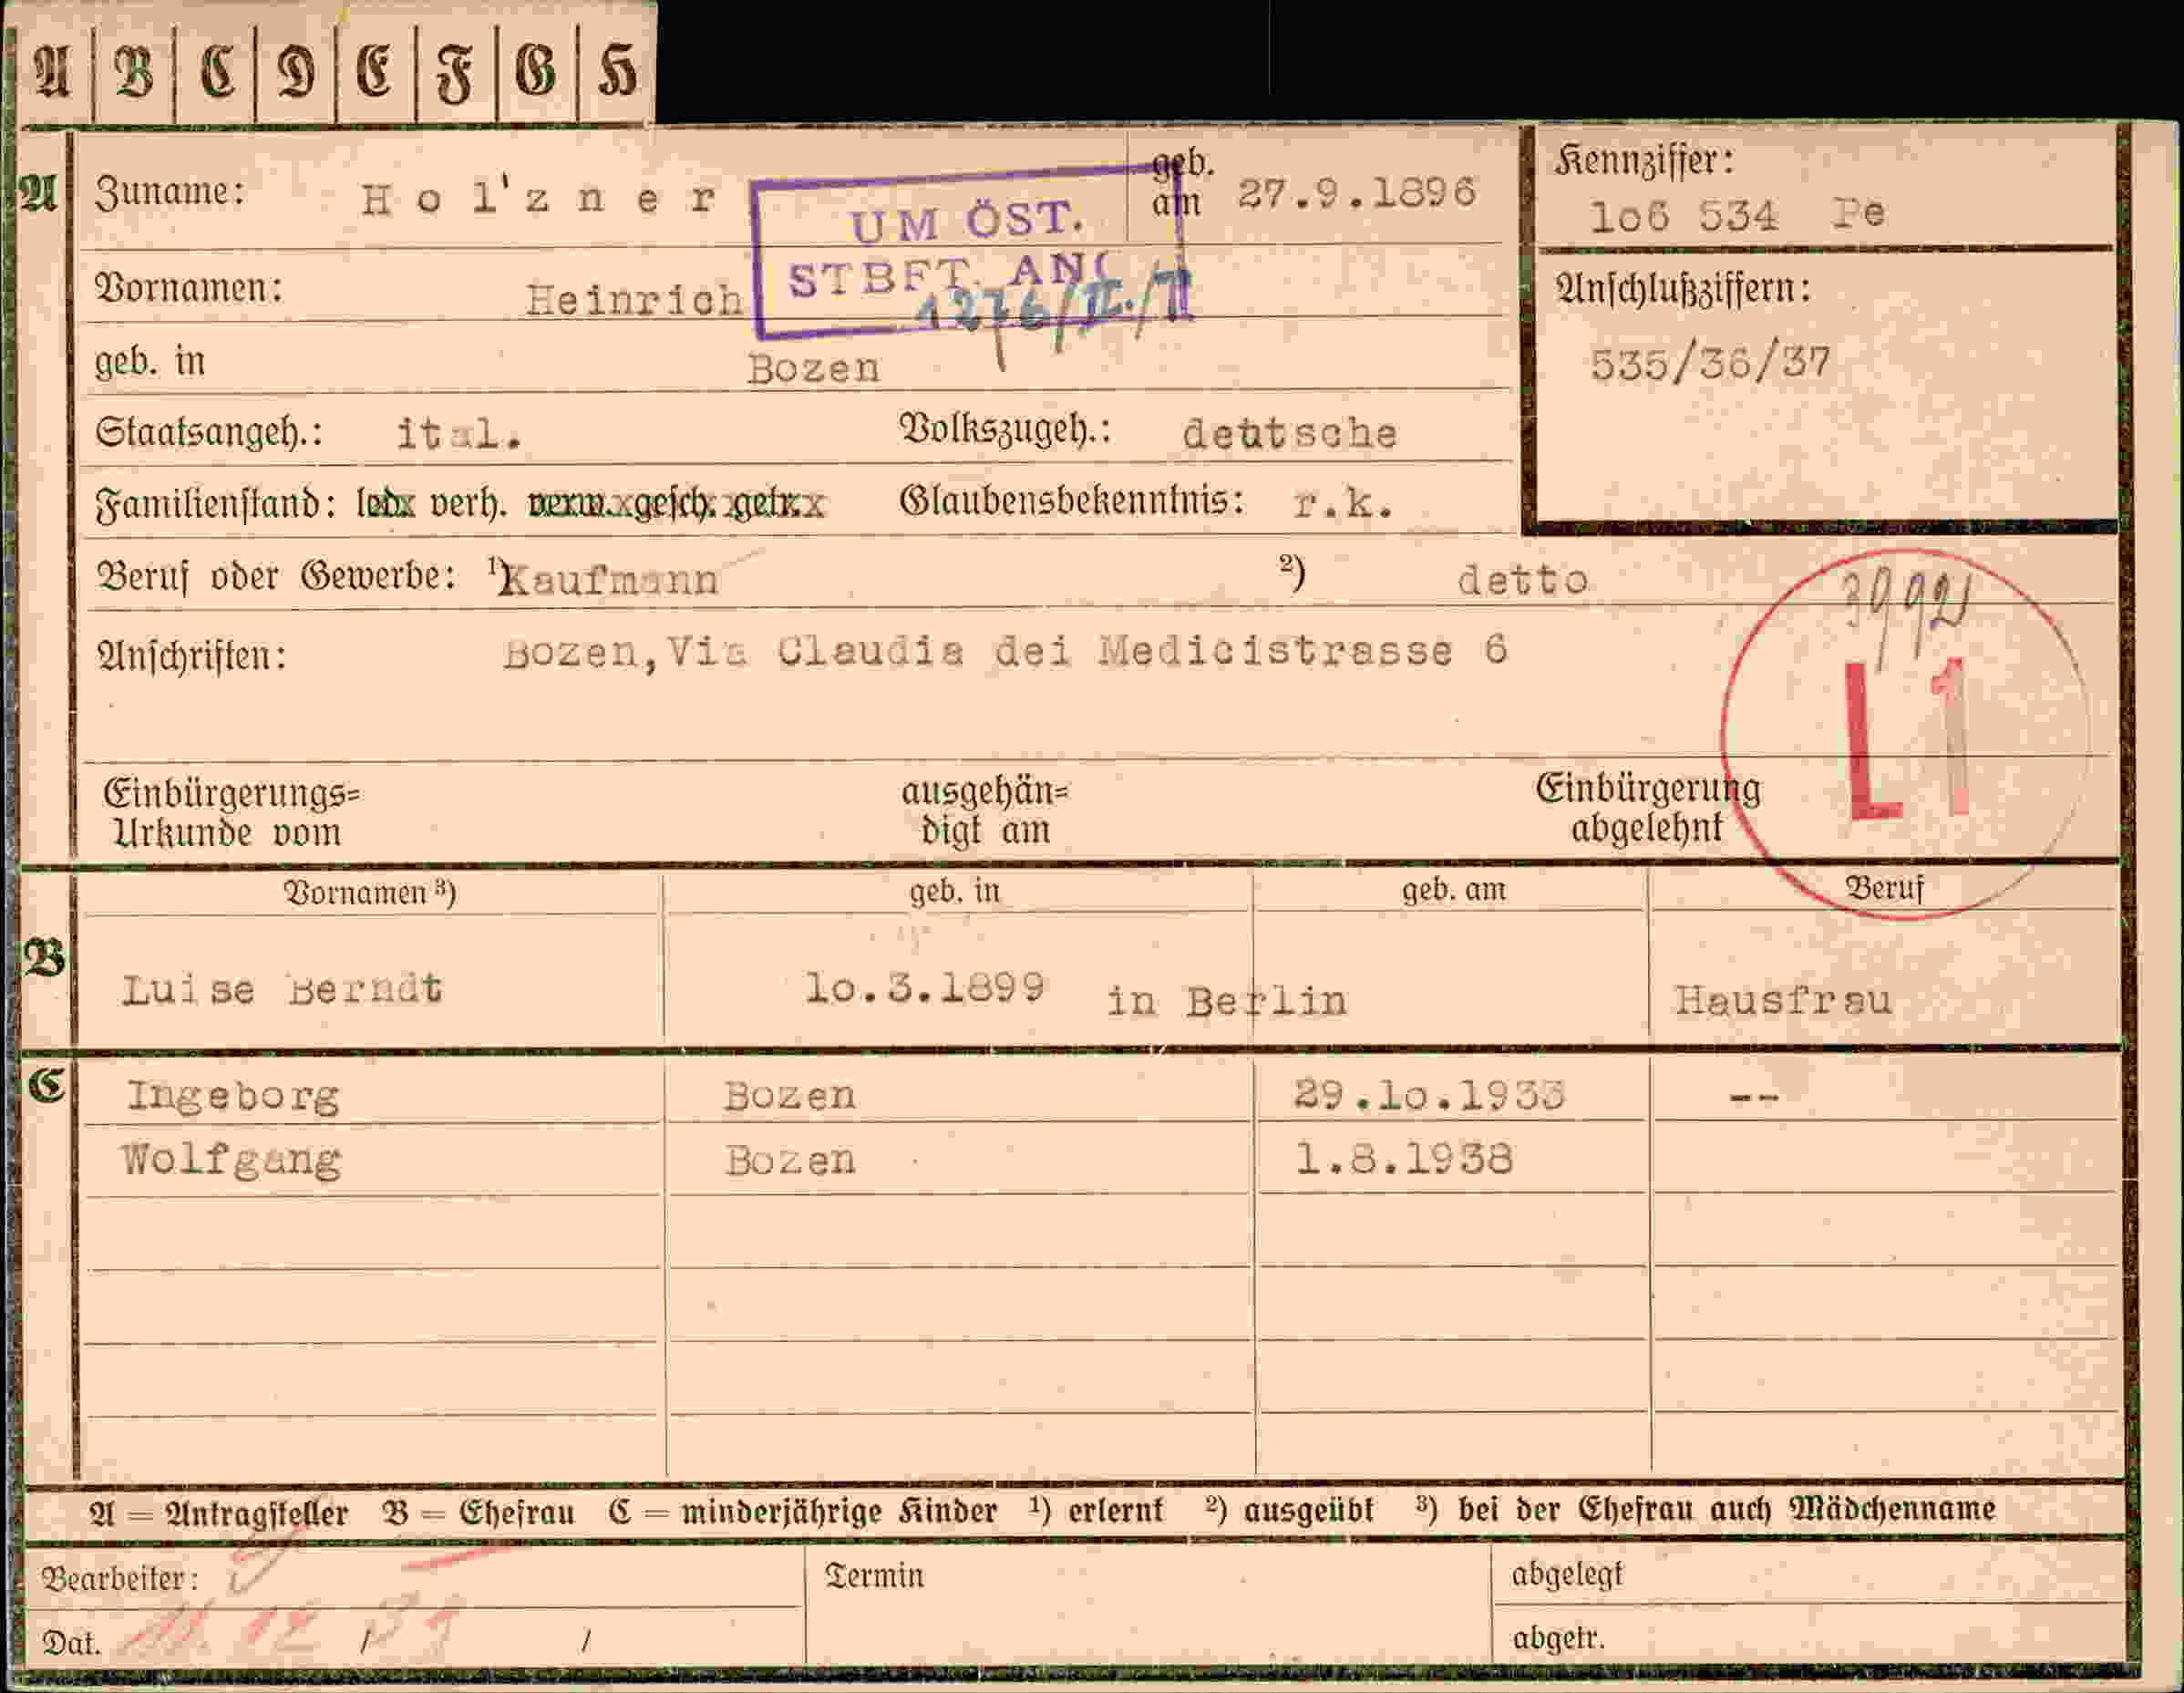 A B C D E F G H
A Zuname: Hol'zner geb. am 27.9.1896 Kennziffer:
1o6 534 Pe
UM ÖST.
STBFT. ANG
1276/II./7
Vornamen: Heinrich
Anschlußziffern:
535/36/37
geb. in Bozen
Staatsangeh.: ital. Volkszugeh.: deutsche
Familienstand: led. verh. verw. gesch. getr. Glaubensbekenntnis: r.k.
Beruf oder Gewerbe: 1) Kaufmann 2) detto
Anschriften: Bozen,Via Claudia dei Medicistrasse 6
L1
Einbürgerungs=
Urkunde vom
ausgehän=
digt am
Einbürgerung
abgelehnt
Vornamen 3) geb. in geb. am Beruf
B Luise Berndt 1o.3.1899 in Berlin Hausfrau
C Ingeborg Bozen 29.1o.1933 --
Wolfgang Bozen 1.8.1938
A = Antragsteller B = Ehefrau C = minderjährige Kinder 1) erlernt 2) ausgeübt 3) bei der Ehefrau auch Mädchenname
Bearbeiter: Termin abgelegt
Dat. / / abgetr.